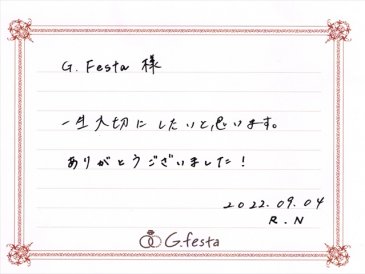 G. Festa 様
一生大切にしたいと思います。
ありがとうございました！
2022.09.04
R.N
G.festa